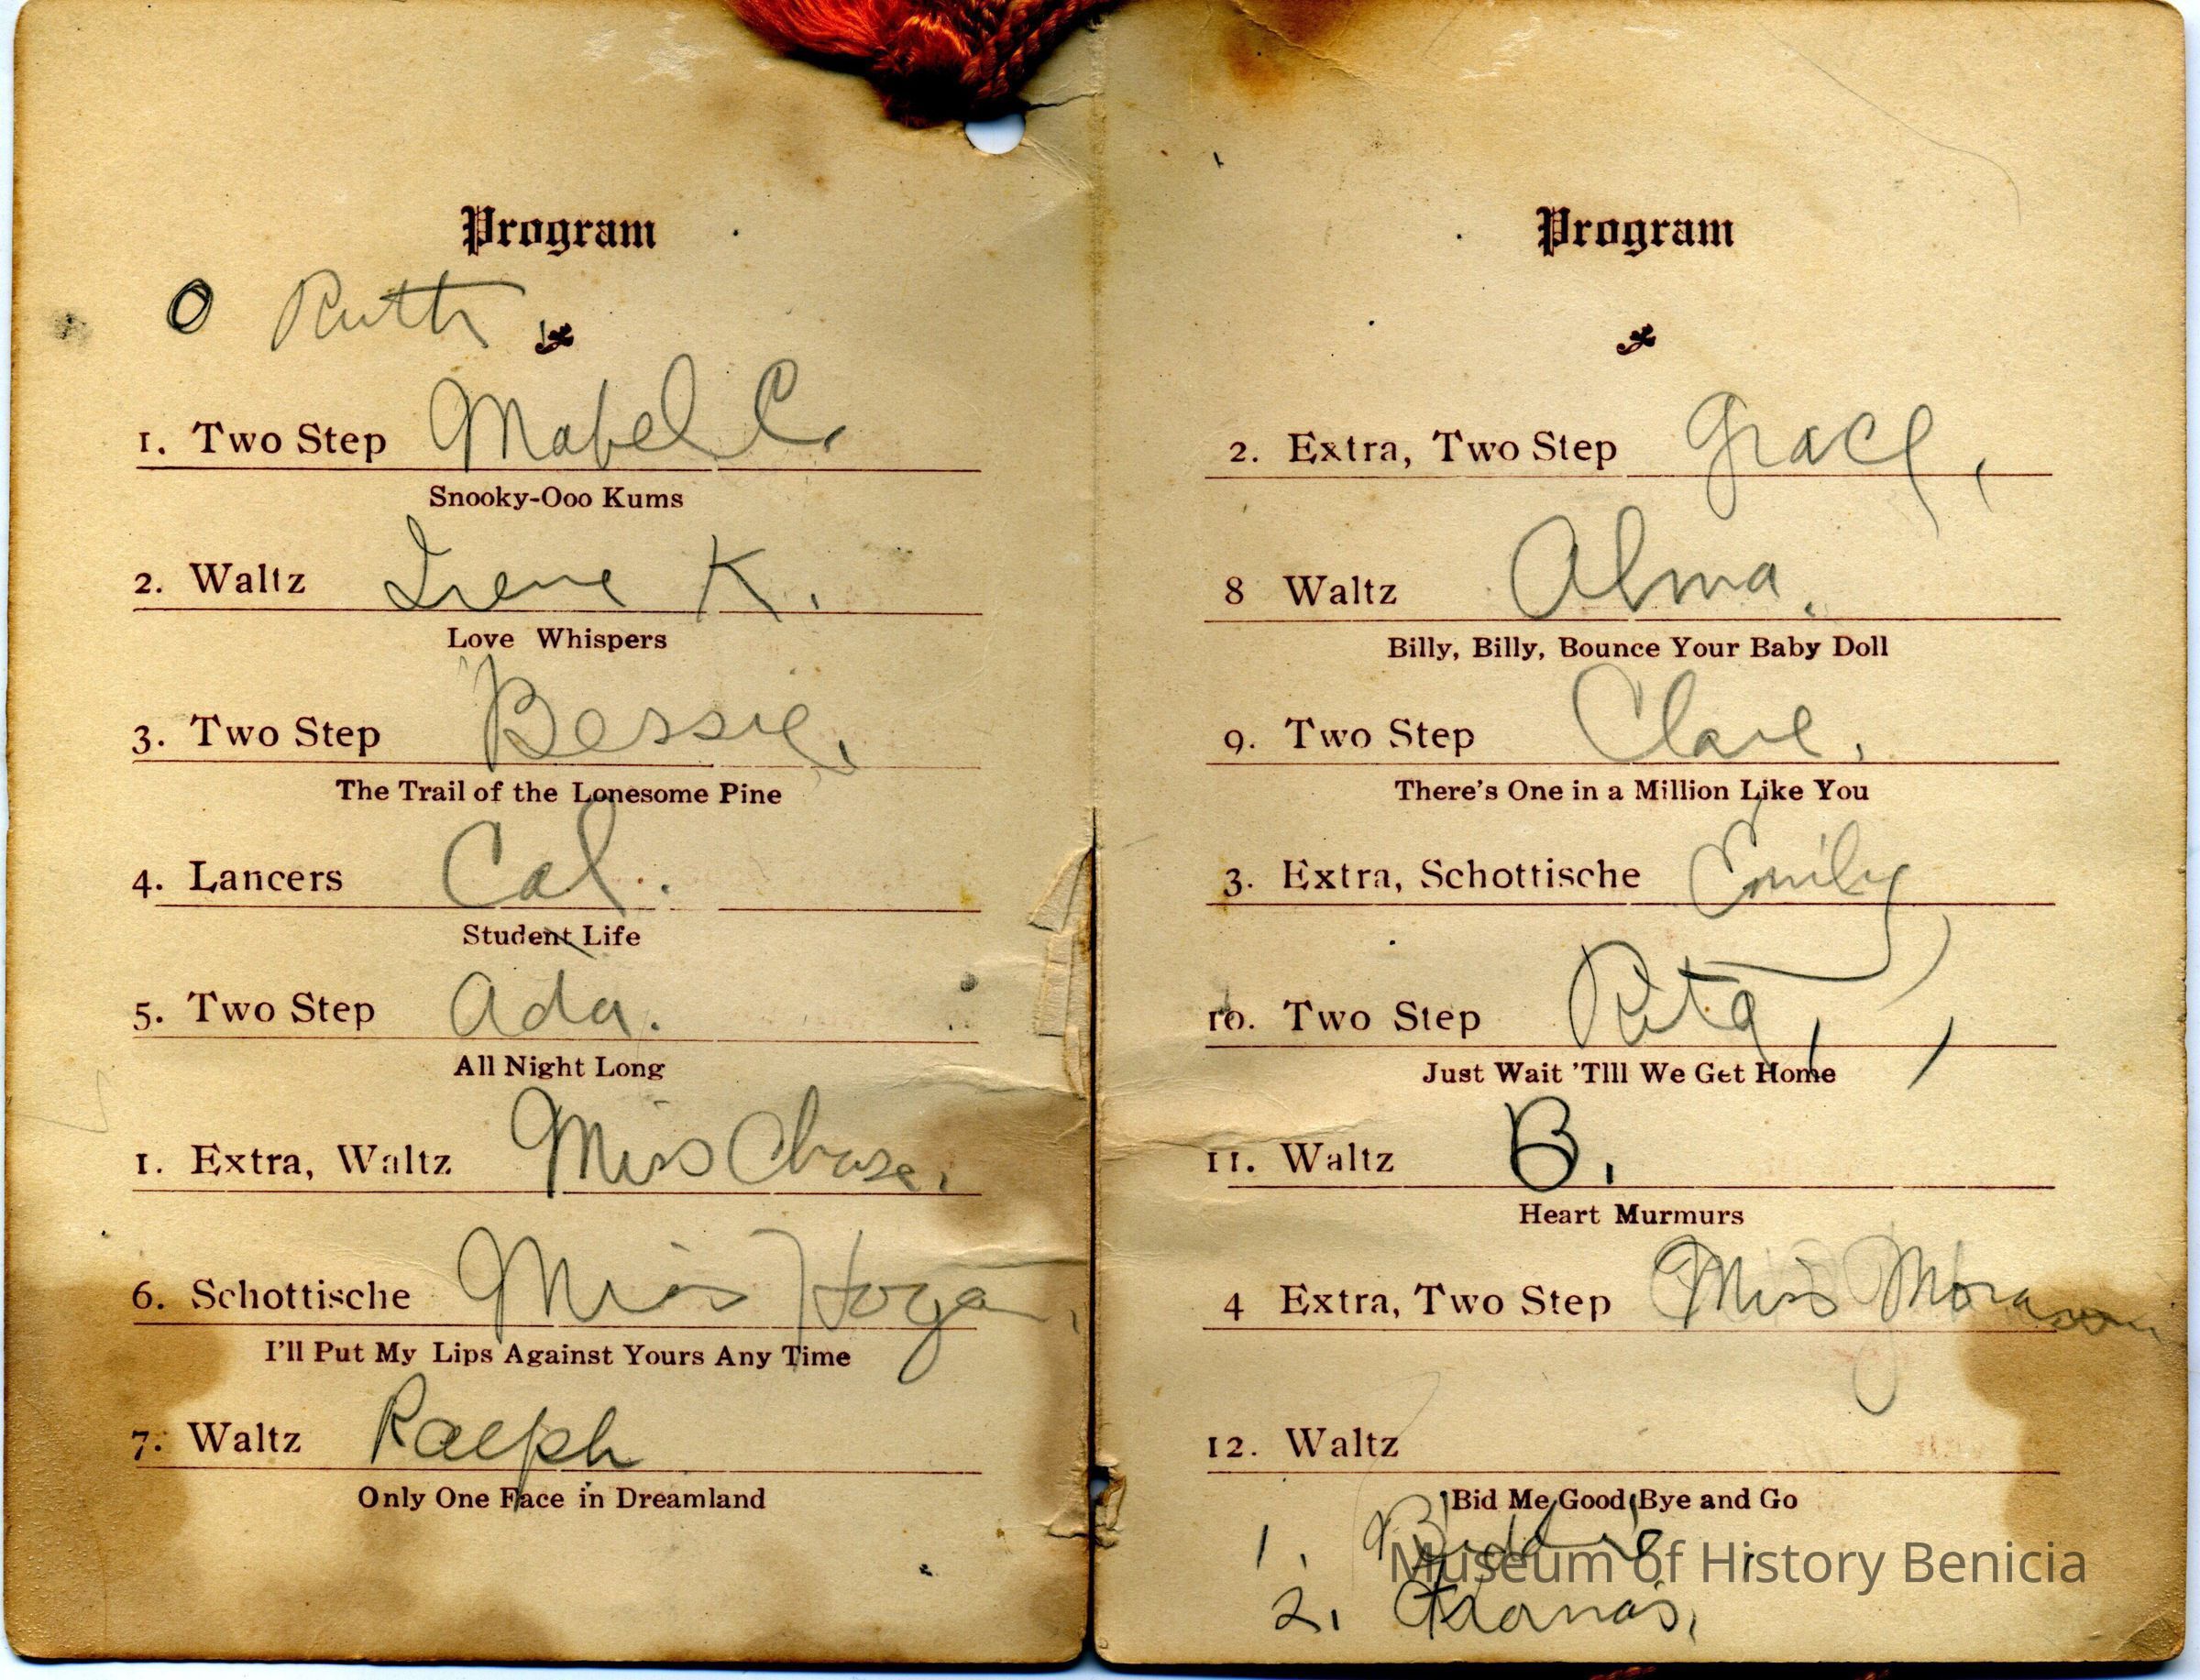 Program
O Ruth
1. Two Step Mabel C.
Snooky-Ooo Kums
2. Waltz Irene K.
Love Whispers
3. Two Step Bessie,
The Trail of the Lonesome Pine
4. Lancers Cal.
Student Life
5. Two Step Ada.
All Night Long
1. Extra, Waltz Miss Chase.
6. Schottische Miss Hogan,
I'll Put My Lips Against Yours Any Time
7. Waltz Ralph
Only One Face in Dreamland
Program
2. Extra, Two Step Grace,
8 Waltz Alma.
Billy, Billy, Bounce Your Baby Doll
9. Two Step Clare,
There's One in a Million Like You
3. Extra, Schottische Emily,
10. Two Step Rita,
Just Wait 'Tlll We Get Home
11. Waltz B.
Heart Murmurs
4 Extra, Two Step Miss
12. Waltz
Bid Me Good Bye and Go
1.
2.
Museum of History Benicia